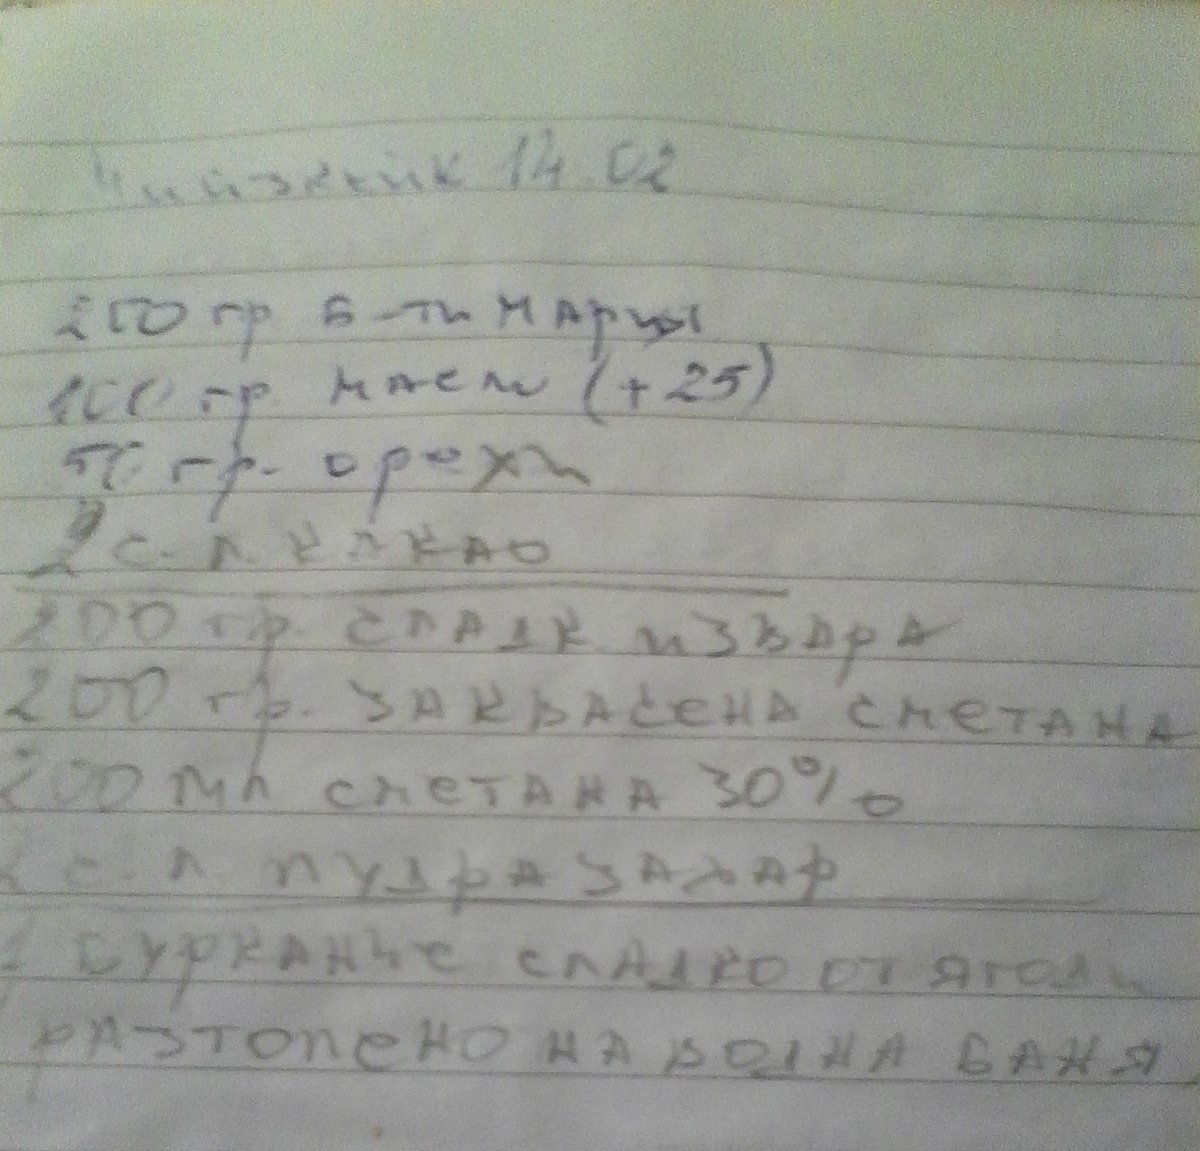 Чийзкейк 14.02
200 гр б-ти
100 гр. масло (+25)
50 гр. орехи
2 с.л. какао
200 гр. сладк извара
200 гр. заквасена сметана
200 мл сметана 30%
2 с.л. пудра захар
1 бурканче сладко от ягоди
разтопено на водна баня